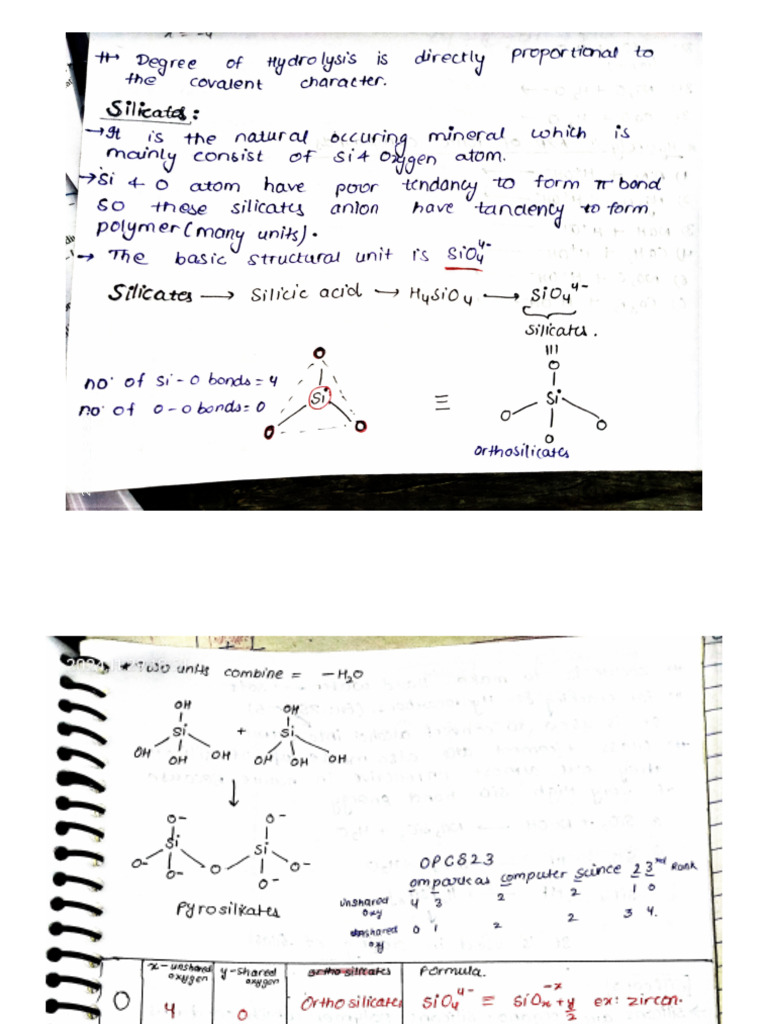 # Degree of Hydrolysis is directly proportional to
the covalent character.
Silicates:
→ It is the natural occuring mineral which is
mainly consist of Si & Oxygen atom.
→ Si & O atom have poor tendancy to form π bond
so these silicates anion have tandency to form
polymer (many units).
→ The basic structural unit is SiO₄⁴⁻
Silicates → Silicic acid → H₄SiO₄ → SiO₄⁴⁻
Silicates.
no. of Si-O bonds = 4
no. of O-O bonds = 0
O
Si
O O
≡
O
Si
O O
O
Orthosilicates
* Two units combine = -H₂O
OH OH
Si + Si
OH OH OH OH OH OH
↓
O⁻ O⁻
Si Si
O⁻ O⁻ O O⁻ O⁻
Pyrosilicates
OPCS23
omparteas computer scince 23rd Rank
unshared oxy 4 3 2 2 1 0
unshared oxy 0 1 2 2 3 4.
x-unshared oxygen y-shared oxygen Formula.
O 4 0 Orthosilicates SiO₄⁴⁻ ≡ SiO x+y/2 ⁻ˣ ex: zircon.